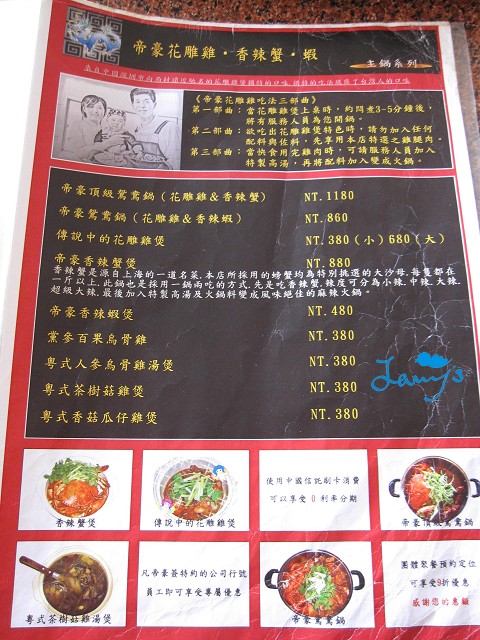 帝豪花雕雞·香辣蟹·蝦
主鍋系列
《帝豪花雕雞吃法三部曲》
第一部曲：當花雕雞煲上桌時，約悶煮3-5分鐘後，
將有服務人員為您開鍋。
第二部曲：欲吃出花雕雞煲特色時，請勿加入任何
配料與佐料，先享用本店特選之雞腿肉。
第三部曲：當快食用完雞肉時，可請服務人員加入
特製高湯，再將配料加入變成火鍋。
帝豪頂級鴛鴦鍋(花雕雞&香辣蟹) NT.1180
帝豪鴛鴦鍋(花雕雞&香辣蝦) NT.860
傳說中的花雕雞煲 NT.380(小)680(大)
帝豪香辣蟹煲 NT.880
香辣蟹是源自上海的一道名菜,本店所採用的螃蟹均為特別挑選的大沙母,每隻都在
一斤以上,此鍋也是採用一鍋兩吃的方式,先是吃香辣蟹,辣度可分為小辣,中辣,大辣,
超級大辣,最後加入特製高湯及火鍋料變成風味絕佳的麻辣火鍋。
帝豪香辣蝦煲 NT.480
黨參百果烏骨雞 NT.380
粵式人參烏骨雞湯煲 NT.380
粵式茶樹菇雞煲 NT.380
粵式香菇瓜仔雞煲 NT.380
Lamy's
香辣蟹煲
傳說中的花雕雞煲
使用中國信託刷卡消費
可以享受 0 利率分期
帝豪頂級鴛鴦鍋
粵式茶樹菇雞湯煲
凡帝豪簽特約的公司行號
員工即可享受專屬優惠
帝豪鴛鴦鍋
團體聚餐預約定位
可享受9折優惠
感謝您的惠顧